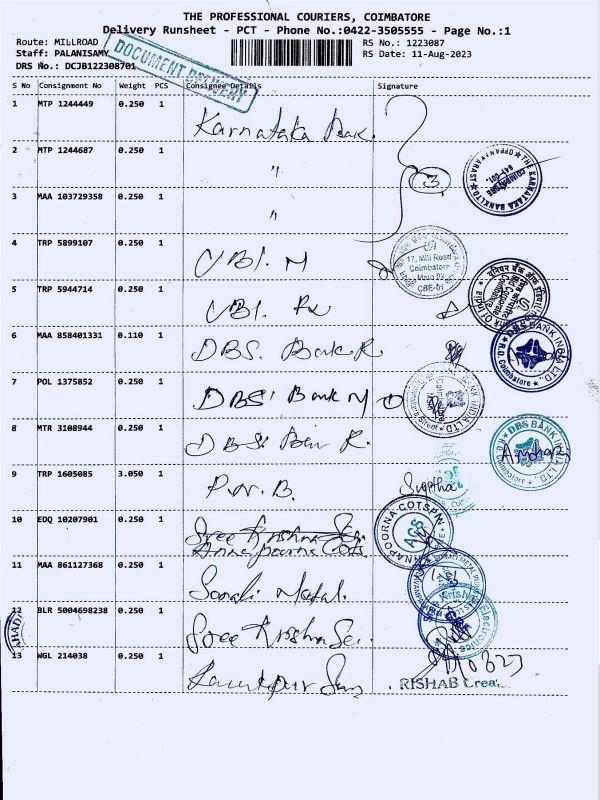 THE PROFESSIONAL COURIERS, COIMBATORE
Delivery Runsheet - PCT - Phone No.:0422-3505555 - Page No.:1
Route: MILLROAD RS No.: 1223087
Staff: PALANISAMY RS Date: 11-Aug-2023
DRS No.: DCJB122308701
DOCUMENT DELIVERY
S No Consignment No Weight PCS Consignee Details Signature
1 MTP 1244449 0.250 1 Karnataka Bak.
2 MTP 1244687 0.250 1 "
3
THE KARNATAKA BANK LTD
COIMBATORE
641-001
3 MAA 103729358 0.250 1 "
4 TRP 5899107 0.250 1 UBI. M
17, Mill Road
Coimbatore
Main Br
CBE-01
5 TRP 5944714 0.250 1 UBI. R
6 MAA 858401331 0.110 1 DBS. Bank R
DBS BANK INDIA LTD.
R.O. Coimbatore
7 POL 1375852 0.250 1 DBS' Bank M
BANK INDIA LTD
8 MTR 3108944 0.250 1 DBS' R.
DBS BANK INDIA LTD.
R.O. Coimbatore
9 TRP 1605085 3.050 1 P.N.B.
10 EDQ 10207901 0.250 1 Sree Krishna
Annapoorna Cots
ANNAPOORNA COTSPIN
ACS
11 MAA 861127368 0.250 1
12 BLR 5004698238 0.250 1 Sree Krishna
Electronics
13 WGL 214038 0.250 1
RISHAB Crea